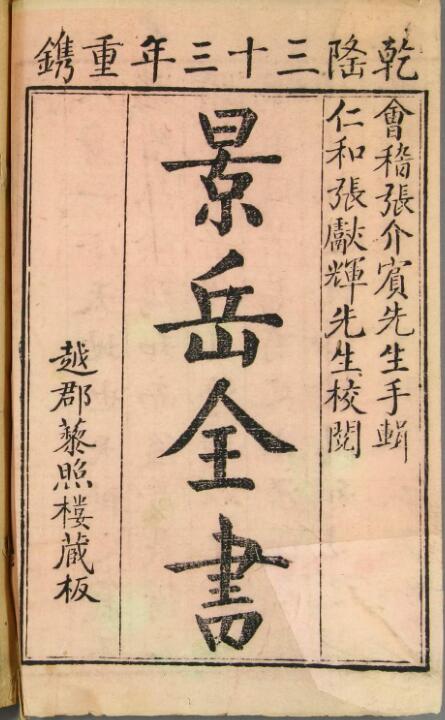 乾隆三十三年重鐫
會稽張介賓先生手輯
仁和張獻輝先生校閱
景岳全書
越郡藜照樓藏板